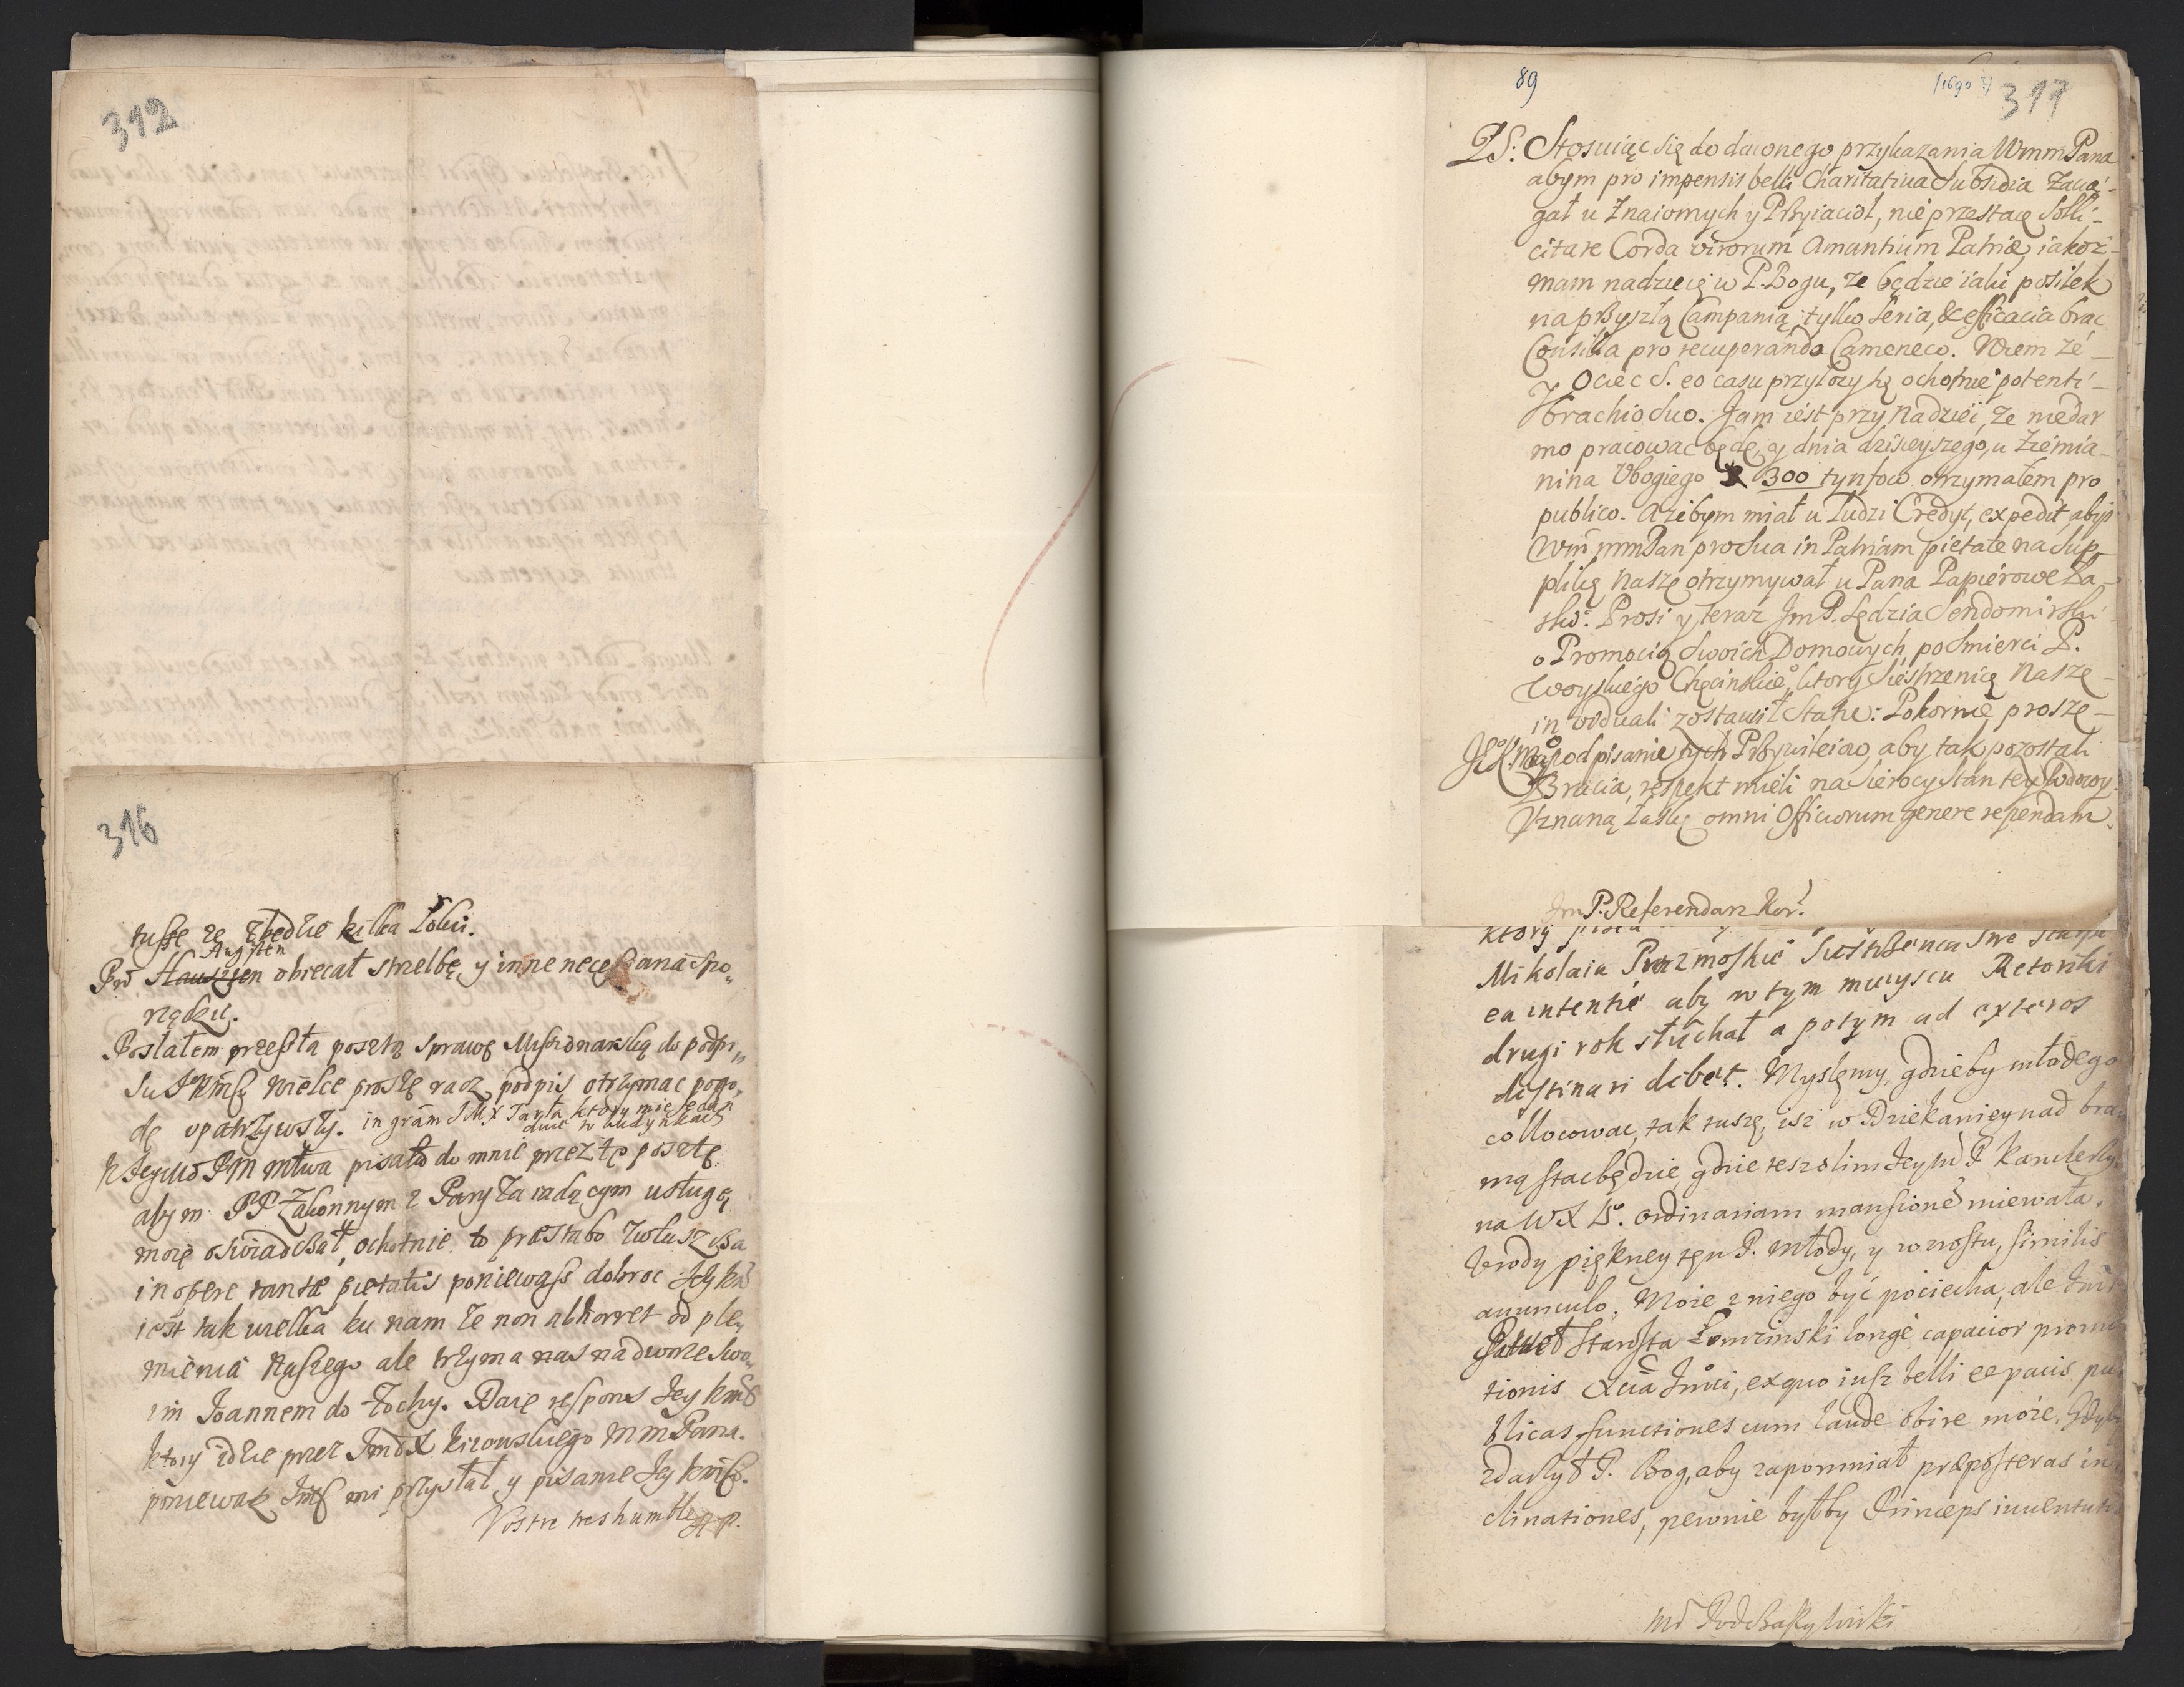 312
316
tusse ze będzie kilka Lokci.
Augsten
Pan obiecał strzelbę y inne necessaria spo„
rządzić.
Posłałem przeszłą posztą sprawę Missionarską do podpi„
su JKmści wielce proszę racz podpis otrzymac pogo„
dę upatrzywszy. in gratiam JMX Tarła, ktory mie
P M mtwa pisała do mnie przez tę posztę
abym PP Zakonnym z Paryża iadącym usługę
moię oswiadczał, ochotnie to
in opere tantæ pietatis poniewasz dobroc Jey kmsci
iest tak wielka ku nam że non abhorret od ple„
mienia naszego ale trzyma nas na dworze swo„
im Joannem do Łochy. Daię respons Jey kmsci
ktory idzie przez MmPana.
poniewasz mi przysłał y pisanie Jey kmsci.
Vostre tres humble
89
/1690 ?/
317
PS: Stosuiąc się do dawnego przykazania WmmPana
abym pro impensis belli Charitativa Subsidia Zacią-
gał u Znaiomych y Przyiaciół, nie przestaię Solli-
citare Corda virorum Amantium Patriæ, iakoż-
mam nadzieię w P. Bogu, że będzie iaki posiłek
na przyszłą Campanią; tylko Seria, & efficacia brac
Consilia pro recuperando Cameneco. Wiem że-
Ociec S. eo casu przyłozy się ochotnie potenti-
brachio suo. Jam iest przy nadziei, że niedar
mo pracowac będę, y dnia dzisieyszego, u Ziemia-
nina Ubogiego 300 tynfow otrzymałem pro
publico. A żebym miał u Ludzi Credyt, expedit abyś
Wm mmPan pro sua in Patriam pietate na Sup-
plikę naszę otrzymywał u Pana Papierowe Ła-
ski. Prosi y teraz Jm P. Sędzia Sendomirski
o Promocią swoich Domowych, po Smierci P.
Woyskiego Chęcinskie, ktory Siestrzenicę naszę-
in viduali zostawił Statu: Pokornie proszę-
JKMci o podpisanie tych Przywileiow, aby tak pozostali
Bracia, respekt mieli na Sierocy Stan tey Wdowy.
Uznaną Łaskę omni Officiorum genere rependam.
Jm P. Referendarz Kor.
ktory
Mikołaia
ea intentie aby w tym mieyscu Retoriki
drugi rok słuchał a potym ad exteros
destinari debet. Myslemy, gdzieby młodego
collocowac, tak tuszę, isz w Dziekaniey nad bra„
mą stac będzie gdzie
na ordinariam mansione miewała.
Urody piękney ten P. młody, y wzrostu, similis
avunculo. Moze z niego być pociecha, ale
Starosta Łomzinski longe capacior promo
tionis ex quo iusz belli et pacis pu
blicas functiones cum laude obire moze. Gdyby
zdarzył P. Bog, aby zapomniał præposteras in
clinationes, pewnie byłby Princeps iuventutis